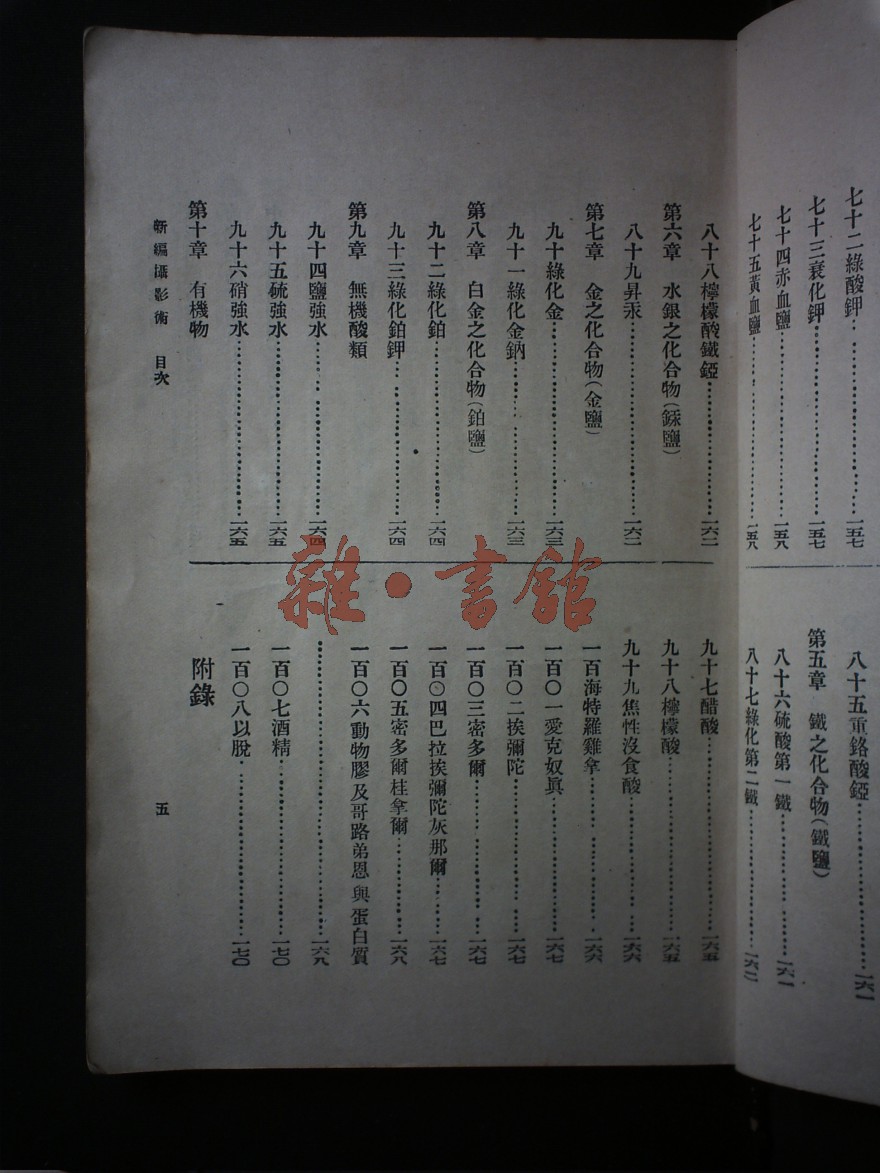 七十二綠酸鉀 一五七
七十三衰化鉀 一五七
七十四赤血鹽 一五八
七十五黃血鹽 一五八
八十五重鉻酸錏 一六一
第五章 鐵之化合物(鐵鹽)
八十六硫酸第一鐵 一六一
八十七綠化第二鐵 一六二
八十八檸檬酸鐵錏 一六二
第六章 水銀之化合物(銾鹽)
八十九昇汞 一六二
第七章 金之化合物(金鹽)
九十綠化金 一六三
九十一綠化金鈉 一六三
第八章 白金之化合物(鉑鹽)
九十二綠化鉑 一六四
九十三綠化鉑鉀 一六四
第九章 無機酸類
九十四鹽強水 一六四
九十五硫強水 一六五
九十六硝強水 一六五
第十章 有機物
九十七醋酸 一六五
九十八檸檬酸 一六五
九十九焦性沒食酸 一六六
一百海特羅雞拿 一六六
一百〇一愛克奴眞 一六七
一百〇二挨彌陀 一六七
一百〇三密多爾 一六七
一百〇四巴拉挨彌陀灰那爾 一六七
一百〇五密多爾桂拿爾 一六八
一百〇六動物膠及哥路弟恩與蛋白質
一六八
一百〇七酒精 一七〇
一百〇八以脫 一七〇
附錄
新編攝影術 目次
五
雜·書館